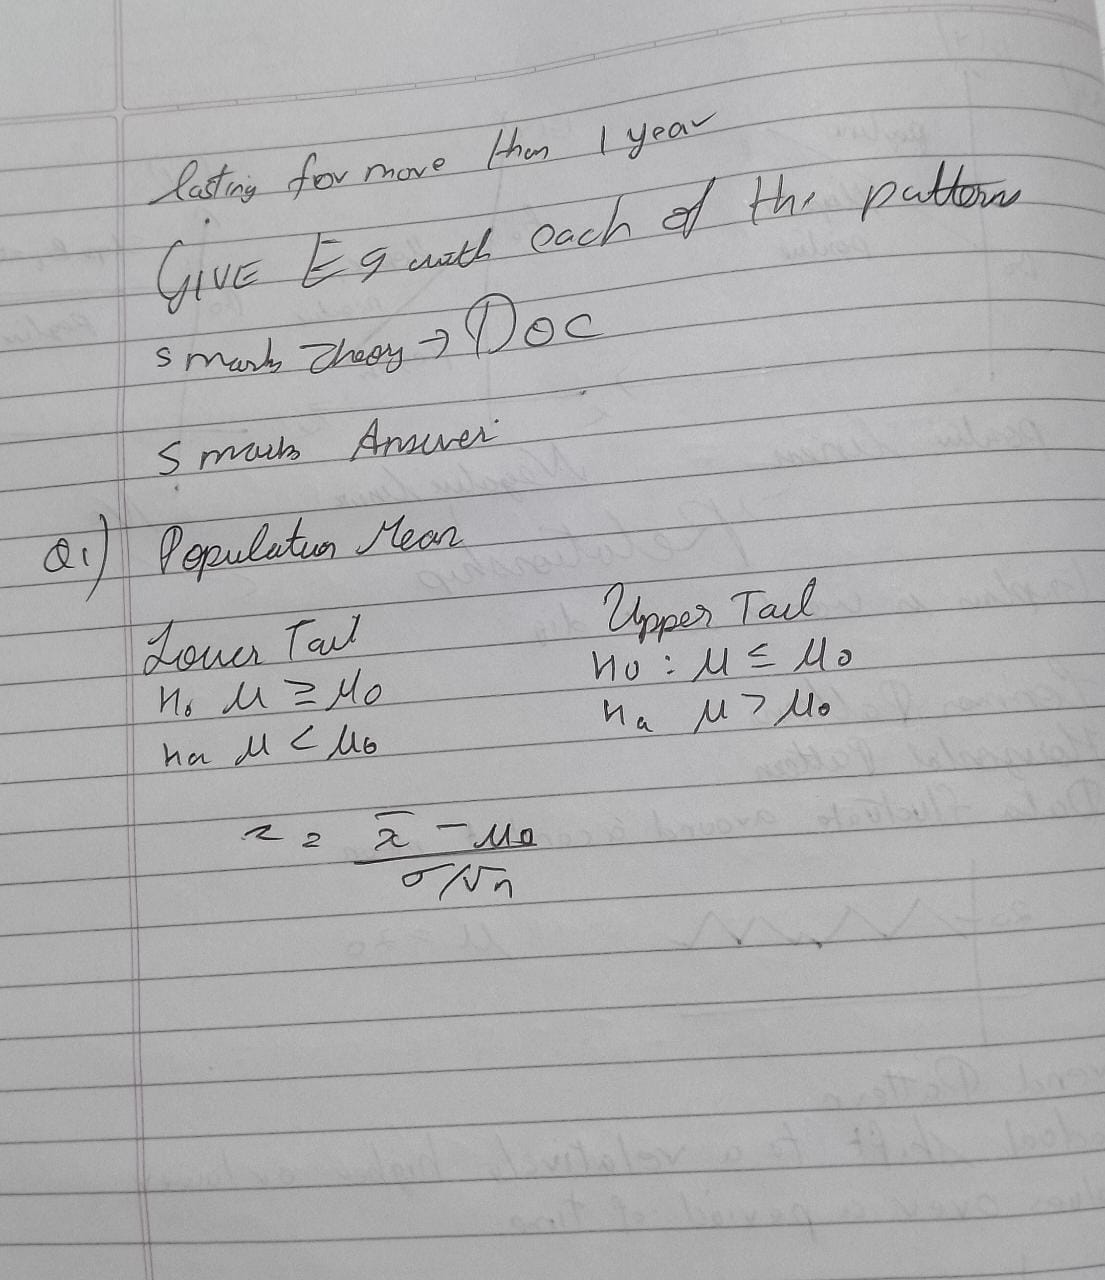 lasting for more than 1 year
GIVE Eg with each of the pattern
5 marks Theory → DOC
5 marks Answer
Q1) Population Mean
Lower Tail
H₀ μ ≥ μ₀
Ha μ < μ₀
Upper Tail
H₀ : μ ≤ μ₀
Ha μ > μ₀
z = x̄ - μ₀
σ/√n